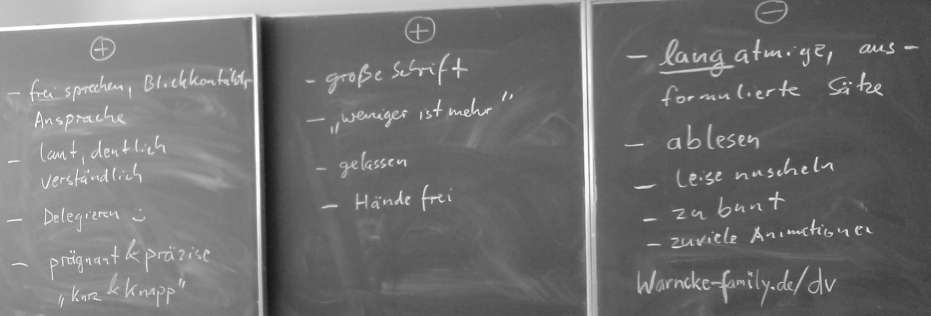 +
- frei sprechen, Blickkontakt,
Ansprache
- laut, deutlich
verständlich
- Delegieren :)
- prägnant & präzise
"kurz & knapp"
+
- große Schrift
- „weniger ist mehr"
- gelassen
- Hände frei
-
- langatmige, aus-
formulierte Sätze
- ablesen
- leise nuscheln
- zu bunt
- zuviele Animationen
Warncke-family.de/dv